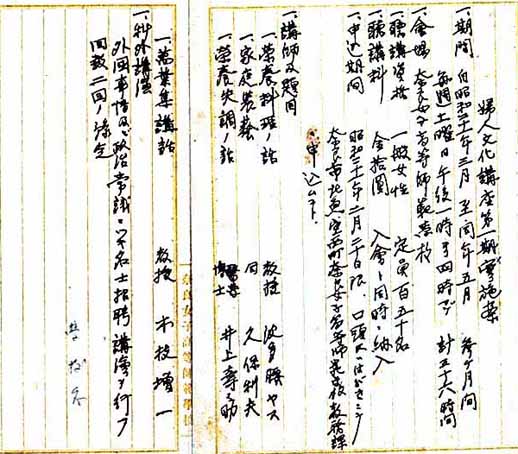 婦人文化講座第一期実施案
一、期間 自昭和二十一年三月 至同年五月 参ヶ月間
毎週土曜日午後一時ヨリ四時マデ 計五十六時間
一、會場 奈良女子高等師範学校
一、聴講資格 一般女性 定員百五十名
一、聴講料 金拾圓 入會ト同時ニ納入
一、申込期間 昭和二十一年二月二十日限、口頭又ハはがきニテ
奈良市北魚屋西町奈良女子高等師範学校教務課
ヘ申込ムコト、
一、講師及題目
一、栄養料理ノ話 教授 波多腰ヤス
一、家庭園藝 同 久保利夫
一、栄養失調ノ話 醫学博士 井上
奈良女子高等師範學校
一、萬葉集講話 教授 木枝増一
一、科外講演
外国事情及ビ政治常識ニツキ名士招聘講演ヲ行フ
回数二回ノ予定